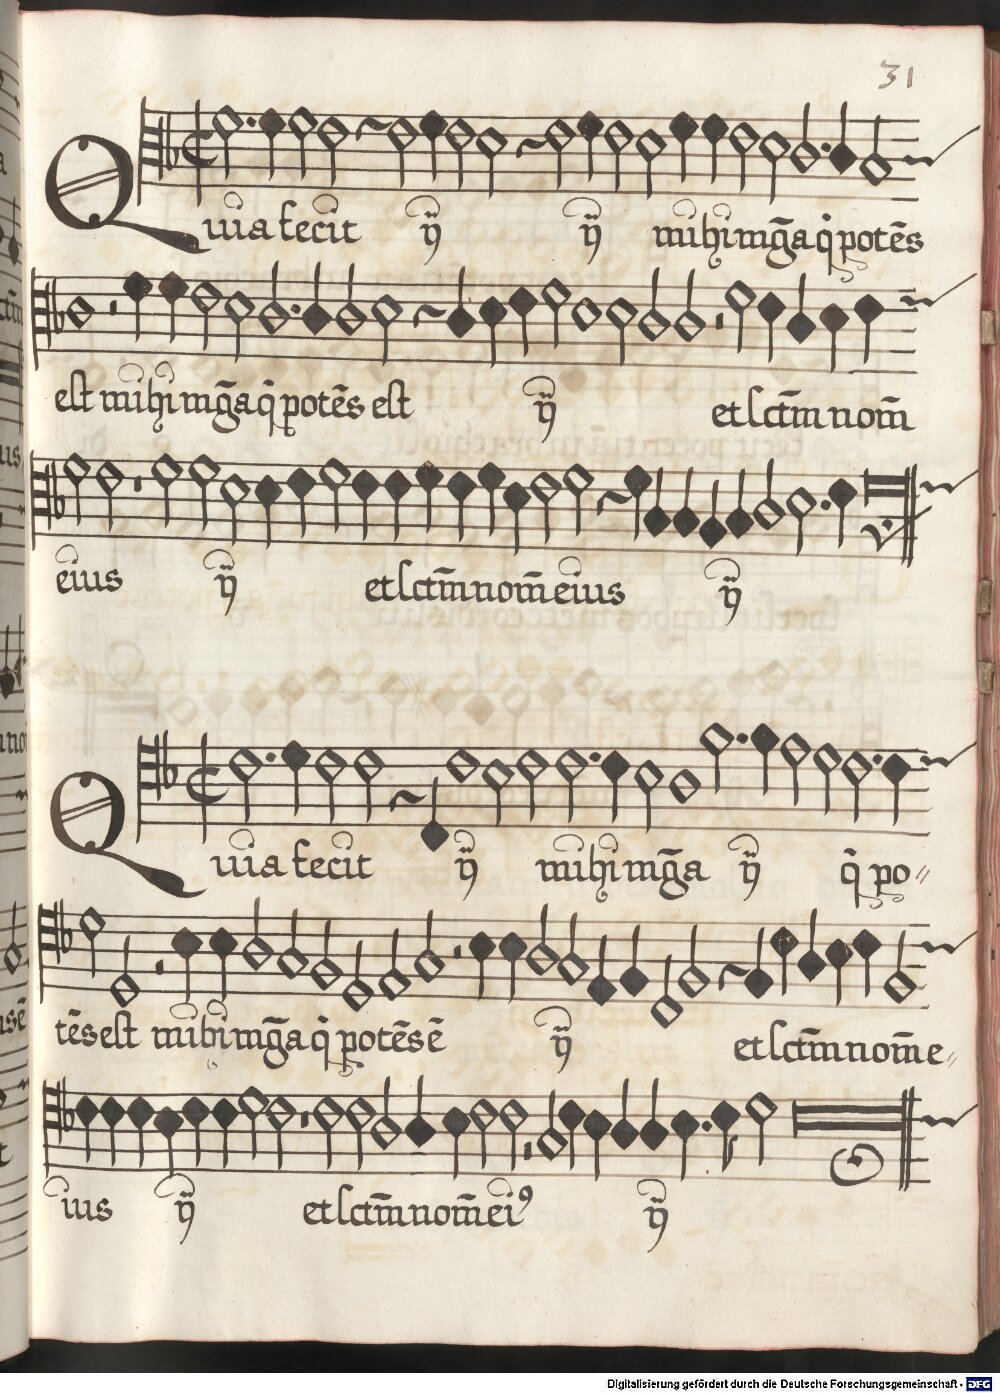 31
Quia fecit ij ij mihi mg̃a q̇ potẽs
est mihi mg̃a q̇ potẽs est ij et sctm̃ nom̃
eius ij et sctm̃ nom̃ eius ij
Quia fecit ij mihi mg̃a ij q̇ po=
tẽs est mihi mg̃a q̇ potẽs ẽ ij et sctm̃ nom̃ e=
ius ij et sctm̃ nom̃ eiꝰ ij
Digitalisierung gefördert durch die Deutsche Forschungsgemeinschaft - DFG